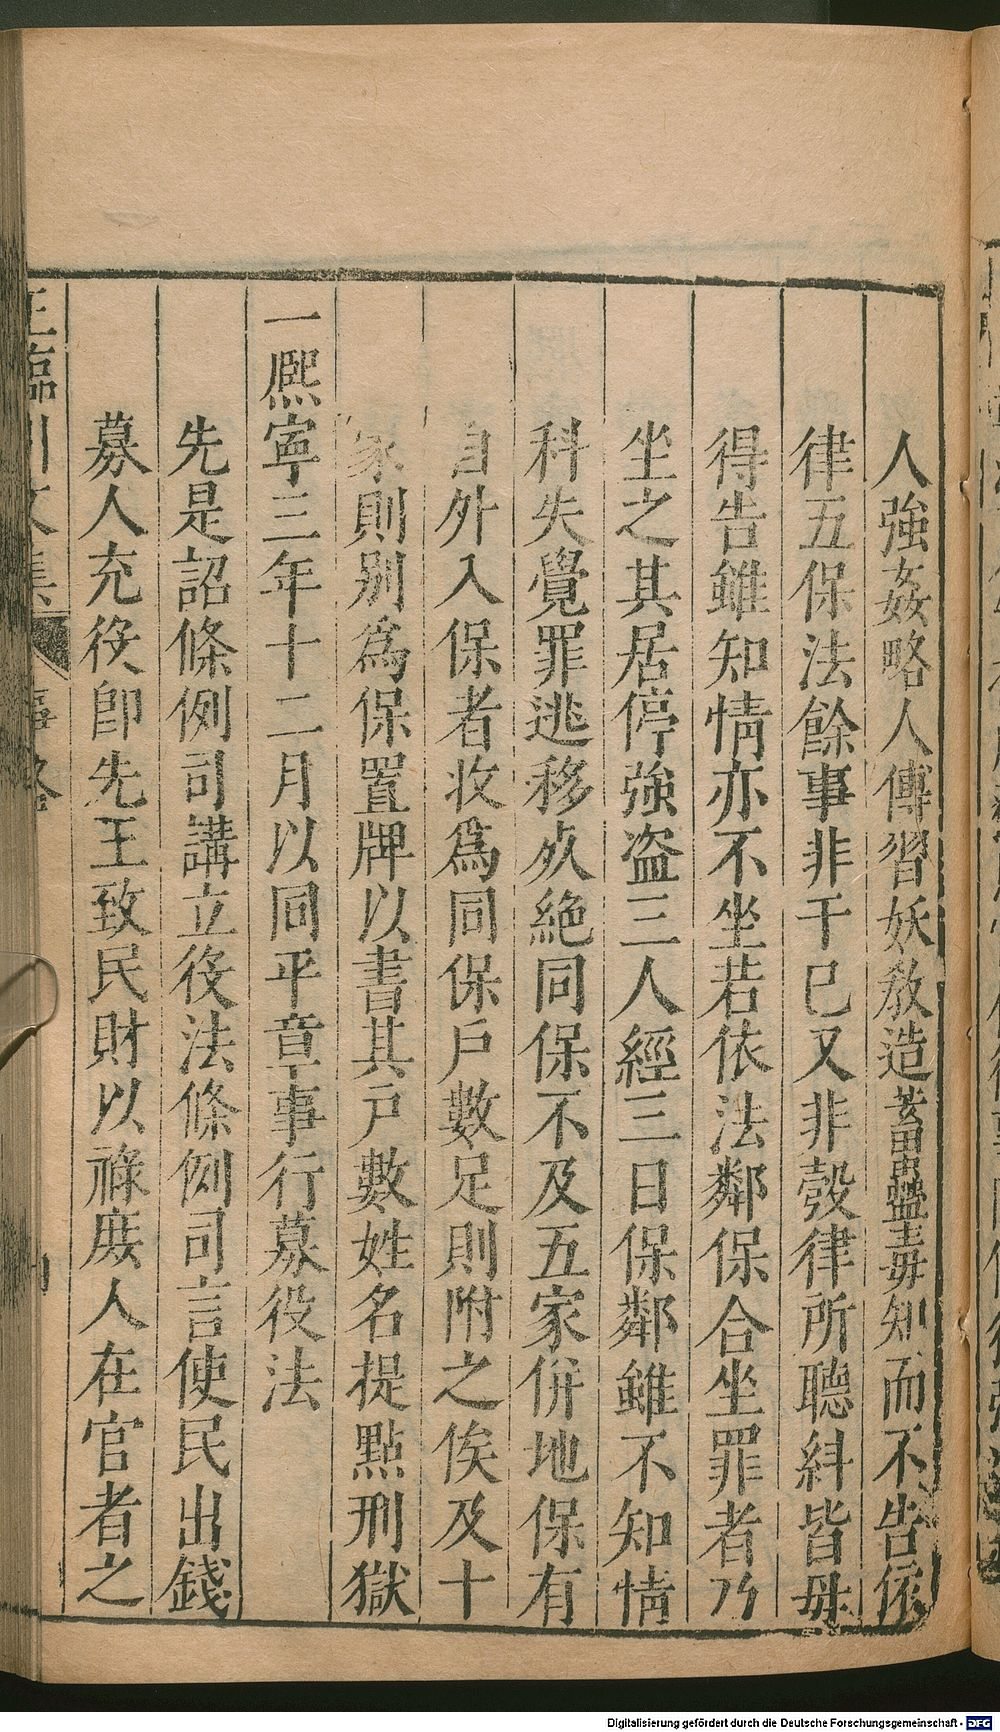 人強姦略人傳習妖敎造蓄蠱毒知而不告依
律五保法餘事非干已又非殼律所聽糾皆毋
得告雖知情亦不坐若依法鄰保合坐罪者乃
坐之其居停強盗三人經三日保鄰雖不知情
科失覺罪逃移死絶同保不及五家併地保有
自外入保者收爲同保戸數足則附之俟及十
家則别爲保置牌以書其戸數姓名提點刑獄
一熈寧三年十二月以同平章事行募役法
先是詔條例司講立役法條例司言使民出錢
募人充役卽先王致民財以祿庻人在官者之
王臨川文集
事略
Digitalisierung gefördert durch die Deutsche Forschungsgemeinschaft - DFG